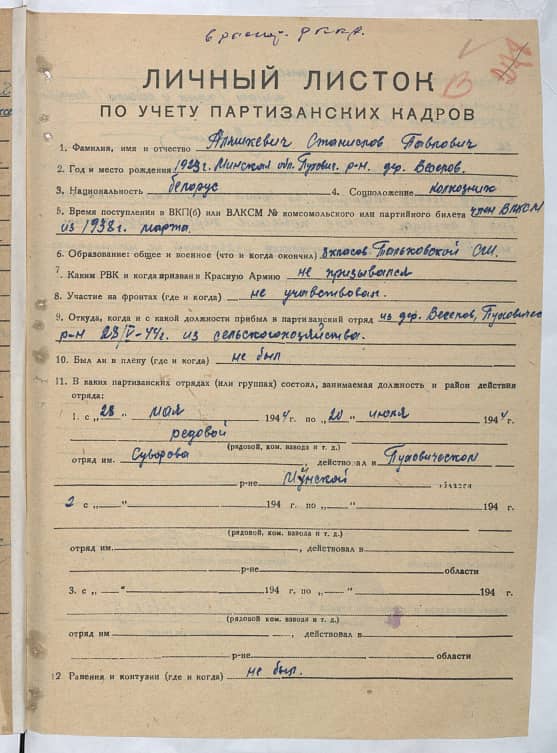 в распор. РККА.
ЛИЧНЫЙ ЛИСТОК
ПО УЧЕТУ ПАРТИЗАНСКИХ КАДРОВ
1. Фамилия, имя и отчество Станислов Павлович
2. Год и место рождения 1923г. Минская обл. Пухович. р-н. дер. Веселов.
3. Национальность белорус 4. Соцположение колхозник
5. Время поступления в ВКП(б) или ВЛКСМ № комсомольского или партийного билета член ВЛКСМ
из 1938г. марта.
6. Образование: общее и военное (что и когда окончил) 8 класов Тальковской СШ.
7. Каким РВК и когда призван в Красную Армию не призывался
8. Участие на фронтах (где и когда) не участвовал.
9. Откуда, когда и с какой должности прибыл в партизанский отряд из дер. Веселов, Пуховичес
р-н 28/V-44г. из сельскогохозяйства.
10. Был ли в плену (где и когда) не был
11. В каких партизанских отрядах (или группах) состоял, занимаемая должность и район действия
отряда:
1. с „28„ мая 1944 г. по „20„ июля 1944 г.
редовой
(рядовой, ком. взвода и т. д.)
отряд им. Суворова, действовал в Пуховическом
р-не Минской области
2 с „—“ 194 г. по „—“ 194 г.
(рядовой, ком. взвода и т. д.)
отряд им. , действовал в
р-не области
3. с „—“ 194 г. по „—“ 194 г.
(рядовой, ком. взвода и т. д.)
отряд им , действовал в
р-не области
12 Ранения и контузии (где и когда) не был.